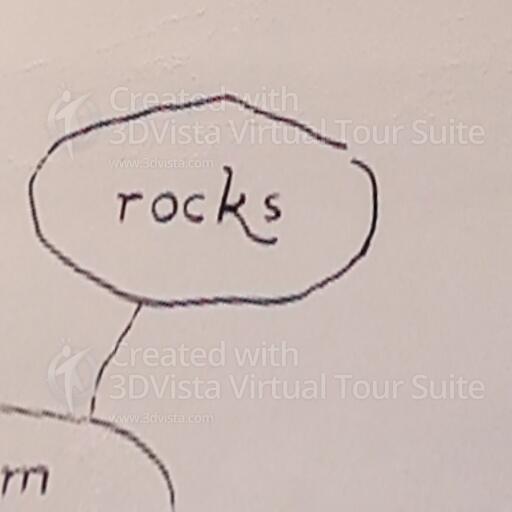 Created with
3DVista Virtual Tour Suite
www.3dvista.com
rocks
Created with
3DVista Virtual Tour Suite
www.3dvista.com
m